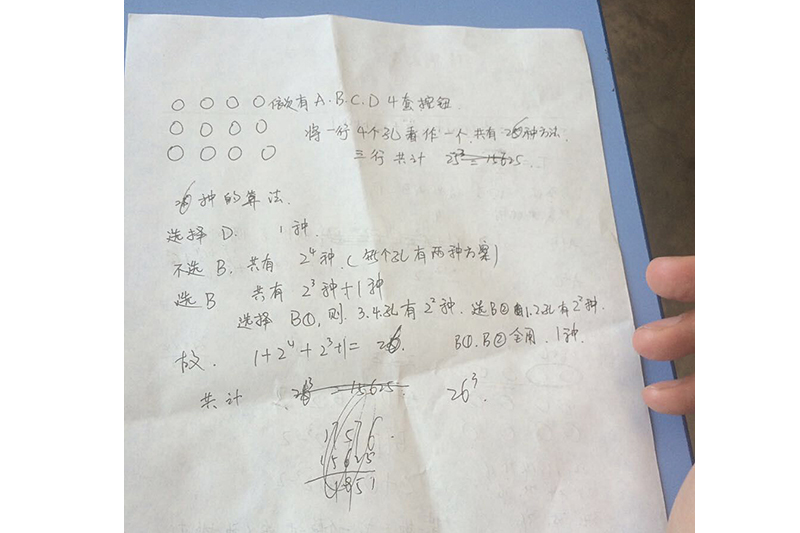 依次有 A.B.C.D 4套按钮
将一行4个孔看作一个,共有26种方法.
三行共计 25³=15625
26种的算法.
选择 D. 1种.
不选 B. 共有 2⁴种.(每个孔有两种方案)
选B 共有 2³种+1种
选择 B①,则.3.4.孔有2²种.选B②有1.2孔有2²种.
B①.B②全用.1种.
故. 1+2⁴+2³+1= 26.
共计 26³ =15625. 26³.
17576.
15625
1851